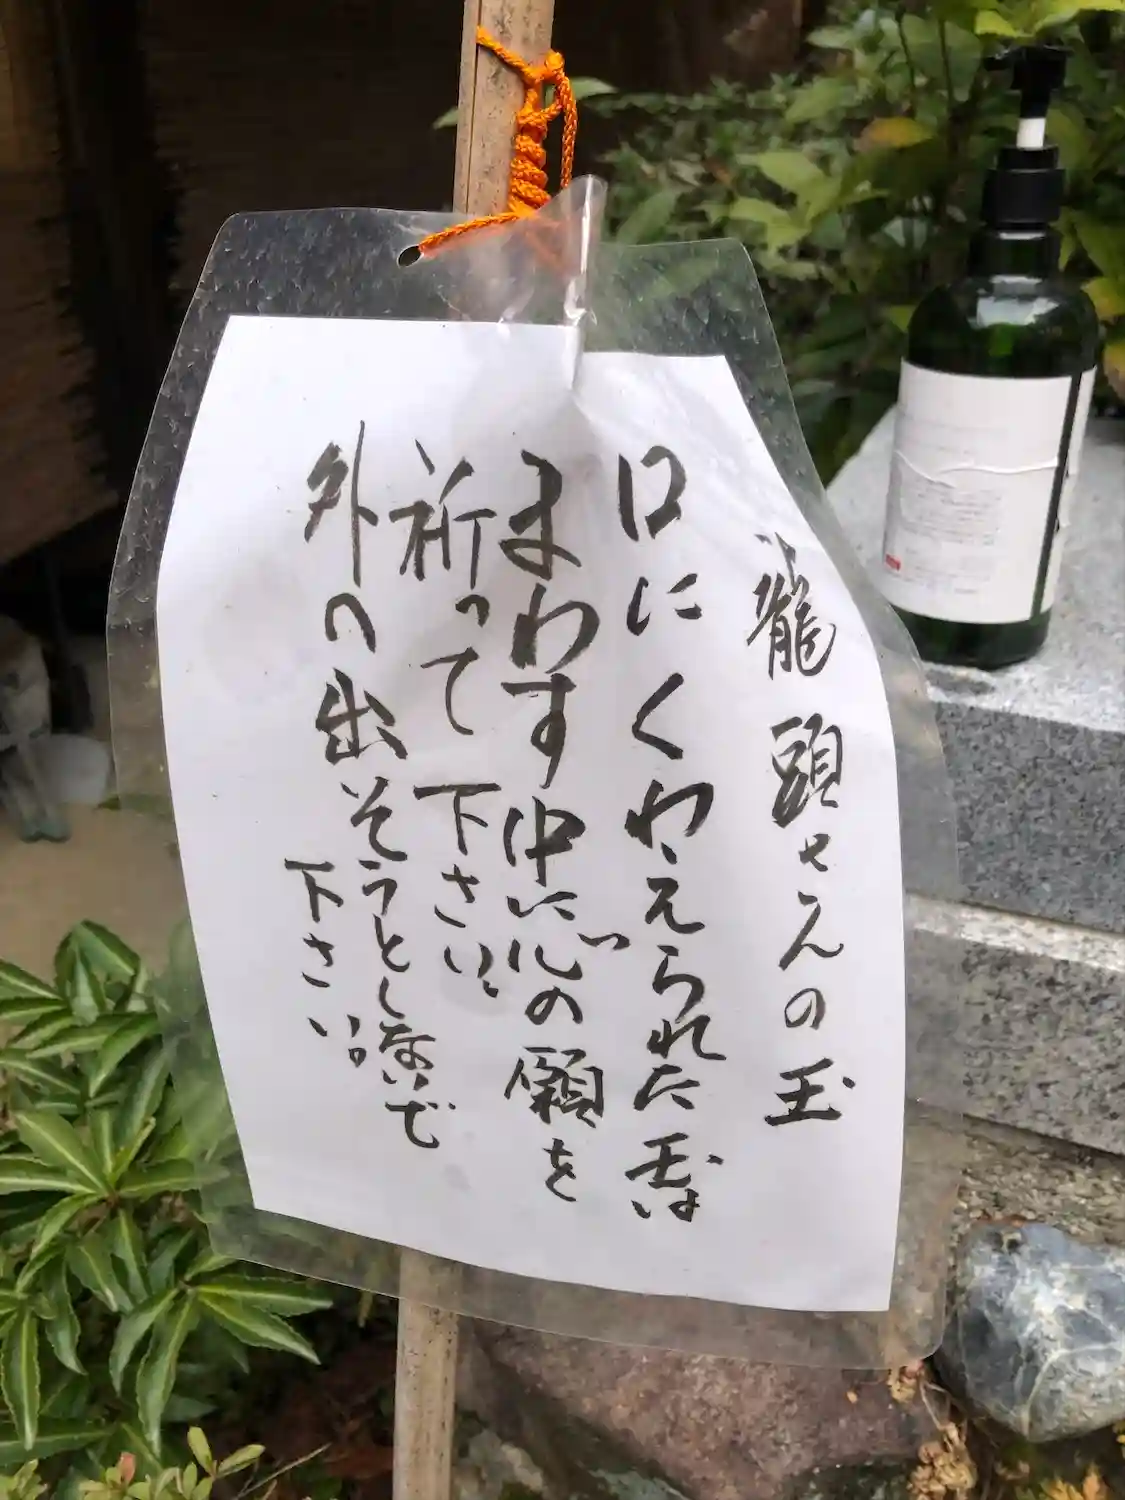 龍頭さんの玉
口にくわえられた玉は
まわす中に一つ心の願を
祈って下さい。
外へ出そうとしないで
下さい。